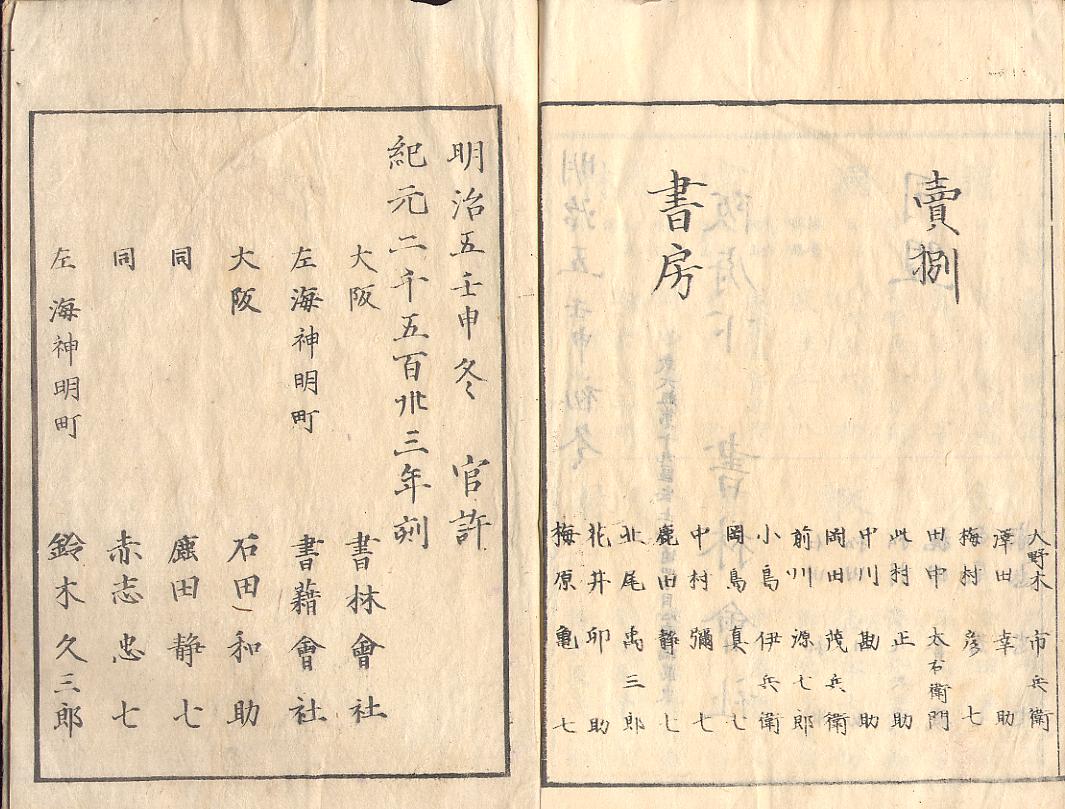 賣捌
書房
大野木市兵衛
澤田幸助
梅村彦七
田中太右衛門
此村正助
中川勘助
岡田茂兵衛
前川源七郎
小島伊兵衛
岡島真七
中村彌七
鹿田静七
北尾禹三郎
花井卯助
梅原亀七
明治五壬申冬 官許
紀元二千五百卅三年刻
大阪 書林會社
左海神明町 書籍會社
大阪 石田和助
同 鹿田静七
同 赤志忠七
左海神明町 鈴木久三郎